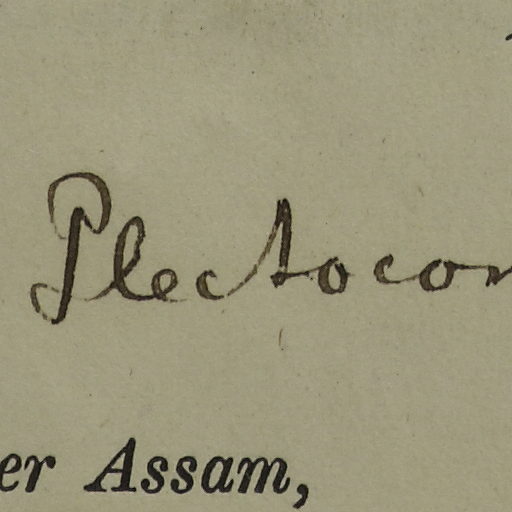 Plectocom
er Assam,